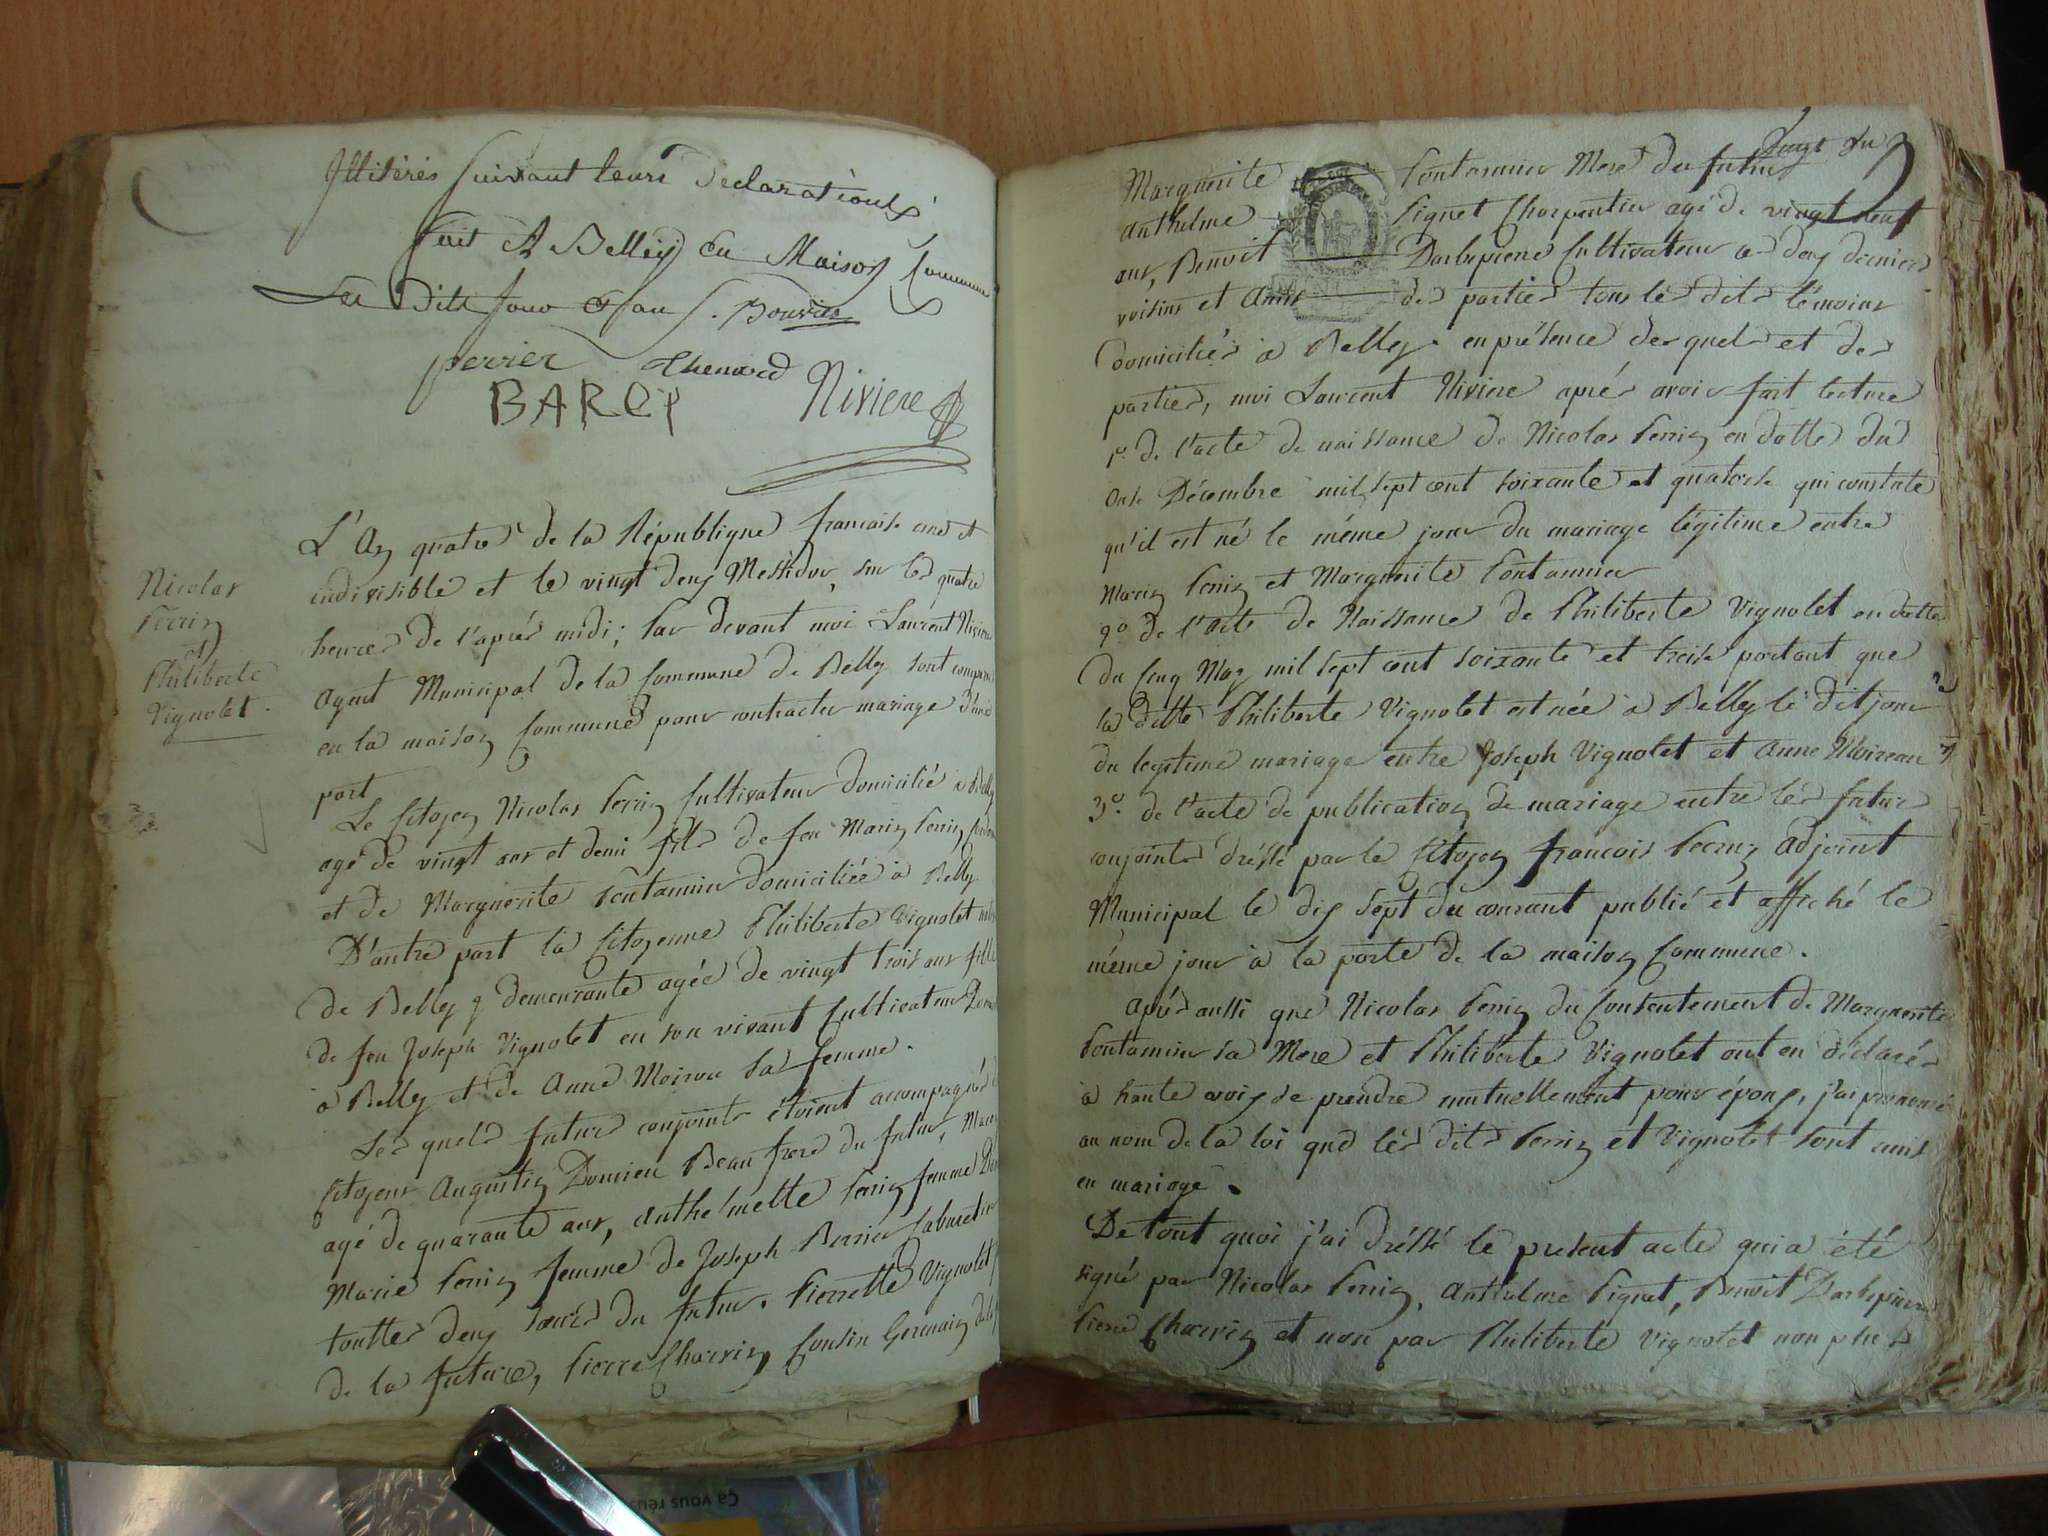 Illitérés suivant leurs déclarations
fait A Belley en Maison Commune
Les Dits Jour et an J. Bouvier
perrier Thenard
BARCY Niviere
L'An quatre de la République francaise une et
indivisible et le vingt deux Messidor, sur les quatre
heures de l'aprés midi; Par devant moi Laurent Niviere
Agent Municipal de la Commune de Belley sont comparus
en la maison Commune pour contracter mariage D'une
part
Nicolas
Perrin
et
Philiberte
Vignolet.
Le Citoyen Nicolas Perrin Cultivateur domicilié à Belley
agé de vingt ans et demi fils de feu Marin Perrin
et de Marguerite Contamin domiciliée à Belley
D'autre part la Citoyenne Philiberte Vignolet
de Belley y demeurante agée de vingt trois ans fille
de feu Joseph Vignolet en son vivant Cultivateur
à Belley et de Anne Moirou sa femme.
Les quels futurs conjoints étoient accompagnés
Citoyens Augustin Domieu Beau frere du futur,
agé de quarante ans, Anthelmette Perrin femme
Marie Perrin femme de Joseph Berrier
touttes deux soeurs du futur. Pierrette Vignolet
de la future, Pierre Charvin Cousin Germain
vingt du
Marguerite Contamin Mere du futur
Anthelme Pignet Charpentier agé de vingt neuf
ans, Benoit Darlepierre Cultivateur ces deux derniers
voisins et Amis des parties tous les dits témoins
Domiciliés à Belley. en présence des quels et des
parties, moi Laurent Niviere aprés avoir fait lecture
1º. de l'acte de naissance de Nicolas Perrin en datte du
onse Décembre mil sept cent soixante et quatorse qui constate
qu'il est né le méme jour du mariage légitime entre
Marin Perrin et Marguerite Contamin
2º de l'acte de Naissance de Philiberte Vignolet en datte
du Cinq May mil sept cent soixante et treise portant que
la ditte Philiberte Vignolet est née à Belley le dit jour
du legitime mariage entre Joseph Vignolet et Anne Moireau
3º. de l'acte de publication de mariage entre les futurs
conjoints dréssé par le Citoyen francois Perrin Adjoint
Municipal le dix sept du courant publié et affiché le
méme jour à la porte de la maison Commune.
Aprés aussi que Nicolas Perrin du Consentement de Marguerite
Contamin sa Mere et Philiberte Vignolet ont eu déclarés
à haute voix se prendre mutuellement pour époux, j'ai prononcé
au nom de la loi que lés dits Perrin et Vignolet sont unis
en mariage.
De tout quoi j'ai dréssé le present acte qui a été
signé par Nicolas Perrin, Anthelme Pignet, Benoit Darlepierre
Pierre Charvin et non par Philiberte Vignolet non plus